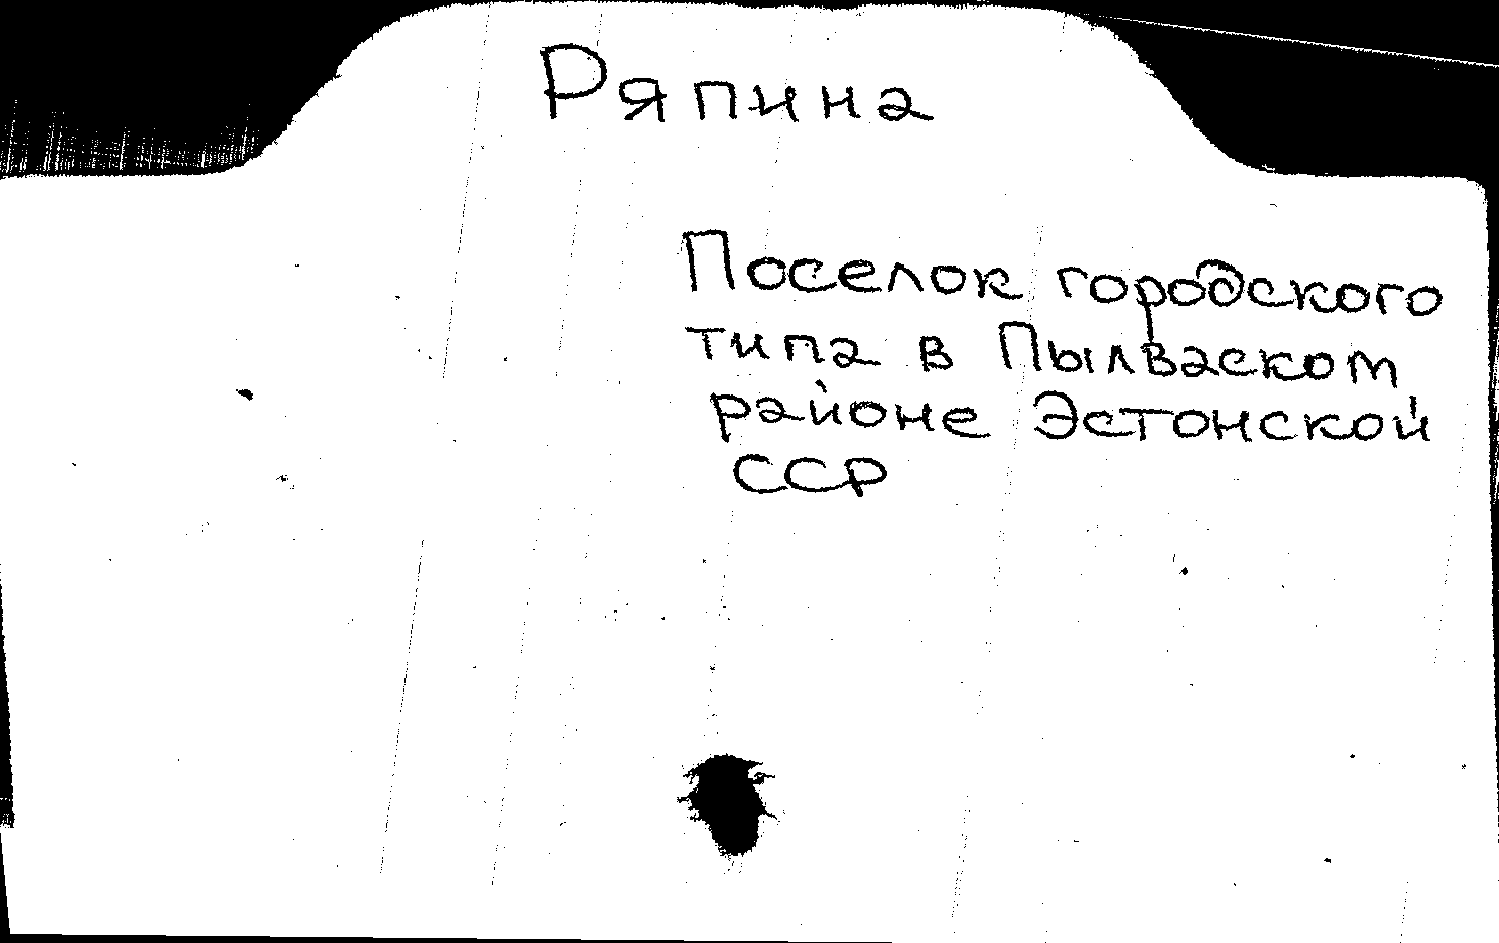 Ряпина
Поселок городского
типа в Пылваском
районе Эстонской
ССР